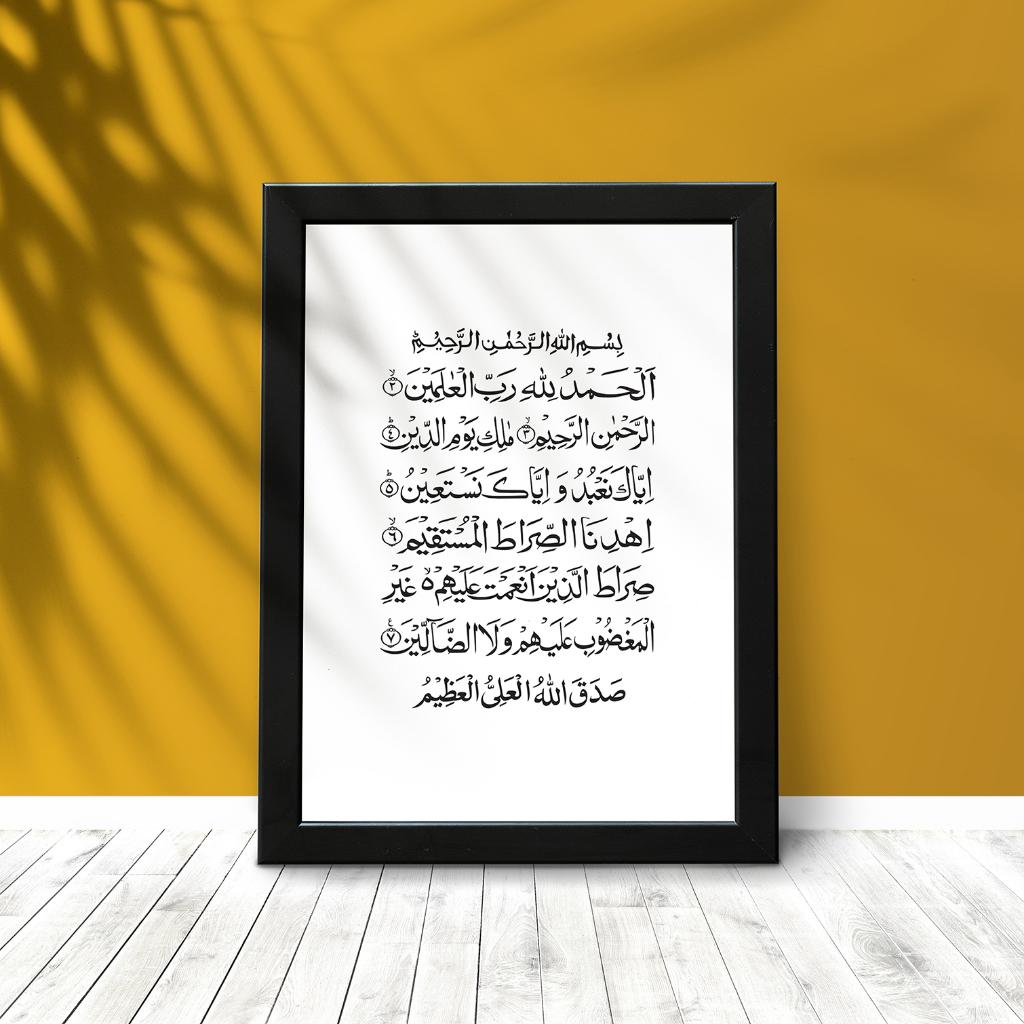 بِسْمِ اللهِ الرَّحْمٰنِ الرَّحِيْمِ
اَلْحَمْدُ لِلّٰهِ رَبِّ الْعٰلَمِيْنَ ۙ﴿٢﴾
الرَّحْمٰنِ الرَّحِيْمِ ۙ﴿٣﴾ مٰلِكِ يَوْمِ الدِّيْنِ ۗ﴿٤﴾
اِيَّاكَ نَعْبُدُ وَ اِيَّاكَ نَسْتَعِيْنُ ۗ﴿٥﴾
اِهْدِنَا الصِّرَاطَ الْمُسْتَقِيْمَ ۙ﴿٦﴾
صِرَاطَ الَّذِيْنَ اَنْعَمْتَ عَلَيْهِمْ ۙ۵ غَيْرِ
الْمَغْضُوْبِ عَلَيْهِمْ وَلَا الضَّآلِّيْنَ ۧ﴿٧﴾
صَدَقَ اللهُ الْعَلِيُّ الْعَظِيْمُ